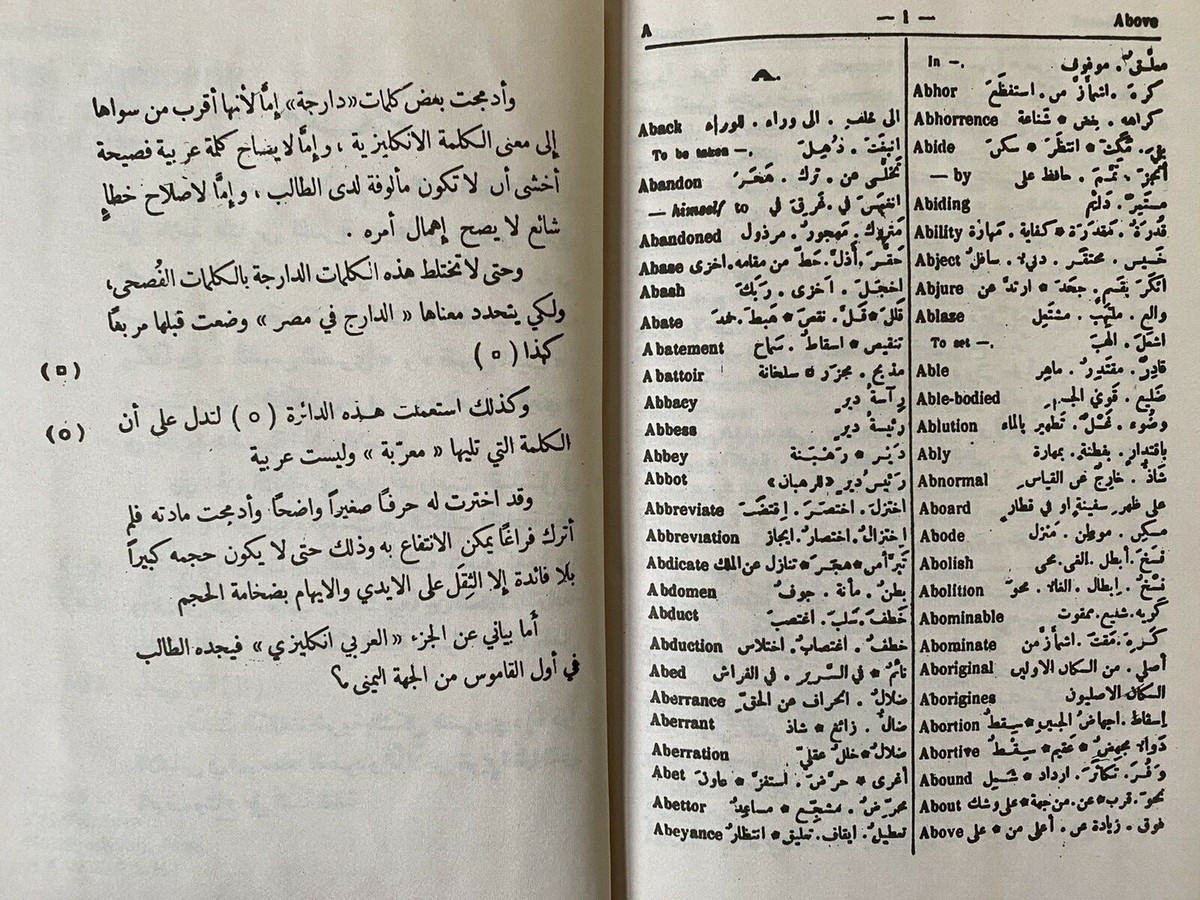 وأدمجت بعض كلمات «دارجة» إمَّا لأنها أقرب من سواها
إلى معنى الكلمة الانكليزية ، وإمَّا لايضاح كلمة عربية فصيحة
أخشى أن لا تكون مألوفة لدى الطالب ، وإمَّا لاصلاح خطإٍ
شائع لا يصح إهمال أمره .
وحتى لا تختلط هذه الكلمات الدارجة بالكلمات الفُصحى،
ولكي يتحدد معناها « الدارج في مصر » وضعت قبلها مربعًا
كهذا ( □ )
(□)
وكذلك استعملت هـذه الدائرة ( ○ ) لتدل على أن
(○)
الكلمة التي تليها « معرّبة » وليست عربية
وقد اخترت له حرفًا صغيراً واضحًا وأدمجت مادته فلم
أترك فراغًا يمكن الانتفاع به وذلك حتى لا يكون حجمه كبيراً
بلا فائدة إلا الثِقَل على الايدي والايهام بضخامة الحجم
أما بياني عن الجزء « العربي انكليزي » فيجده الطالب
في أول القاموس من الجهة اليمنى
A — 1 — Above
A.
Aback الى خلف . الى وراء . للوراء
To be taken —.
Abandon تَخَلَّى عن . ترك . هَجَرَ
— himself to
Abandoned متروك . مهجورٌ . مرذول
Abase حَقَّرَ. أَذلَّ. حَطَّ من مقامه. اخزى
Abash اخجلَ . أخزى . رَبَكَ
Abate
Abatement تنقيص * اسقاطٌ . سَماح
Abattoir مذبح . مجزر □ سلخانة
Abbacy رِآسةُ ديرٍ
Abbess رئيسةُ ديرٍ
Abbey دَيْر * رَهْبَنة
Abbot رَئيسُ ديرٍ «للرهبان»
Abbreviate اختزلَ . اختصرَ . اِقتضَبَ
Abbreviation اِختزالٌ. اختصارٌ. ايجاز
Abdicate تنازل عن الملك
Abdomen بطنٌ . مأنة . جوفٌ
Abduct خَطَفَ. سَلبَ . اغتصبَ
Abduction خطفٌ . اغتصابٌ . اختلاس
Abed نائمٌ * في السَّرير . في الفراش
Aberrance ضلالٌ . انحراف عن الحقّ
Aberrant ضالٌّ . زائغ * شاذ
Aberration ضلالٌ * خللٌ عقليٌّ
Abet أغرى * حرَّضَ . استفزَّ * عاونَ
Abettor محرّضٌ . مشجّع * مساعدٌ
Abeyance تعطيلٌ . ايقاف. تعليق * انتظارٌ
In —. معلَّقٌ . موقوف
Abhor كرهَ . اشمأزَّ من . استفظَعَ
Abhorrence كراهه . بغض * شناعة
Abide
— by
Abiding مستمِرٌّ . دائم
Ability قُدرَةٌ . مَقدَرَة * كفاية . مَهارَة
Abject خَسيس . محتقَر . دنيء . سافلٌ
Abjure أنكرَ بقَسَمٍ . جحَدَ * ارتدَّ عن
Ablaze والع . ملتهِب . مشتعِل
To set —. اشعلَ . ألهبَ
Able قادرٌ . مقتدِرٌ . ماهِر
Able-bodied ضليع . قويّ الجسمِ
Ablution وضُوء . غَسْلٌ . تطهير بالماء
Ably باقتدارٍ . بفطنةٍ . بمهارة
Abnormal شاذٌّ . خارجٌ عن القياس
Aboard على ظهرِ سفينةٍ او في قطار
Abode مسكن . موطن . مَنزِل
Abolish فسَخَ . أبطل . الغى . محى
Abolition فسْخٌ . إبطال . الغاء . محوٌ
Abominable كريه. شنيع. ممقوت
Abominate كَرِهَ . مَقتَ . اشمأزَّ من
Aboriginal أصلي . من السكان الاولين
Aborigines السكان الاصليون
Abortion إسقاط. اجهاضٌ
Abortive دَواءٌ مجهِضٌ * عَقيم * سِقْطٌ
Abound وَفُرَ. تكاثَرَ
About نحوَ. قربَ * عن. من جهة * على وشك
Above فوق . زيادة عن . أعلى من * على